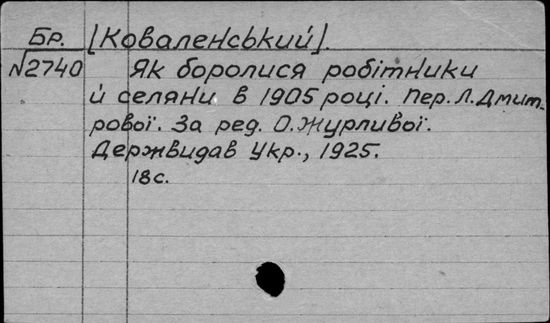 Бр. [Коваленський].
№2740 Як боролися робітники
й селяни в 1905 році. Пер. Л. Дмит-
рової. За ред. О. Журливої.
Держвидав Укр., 1925.
18с.